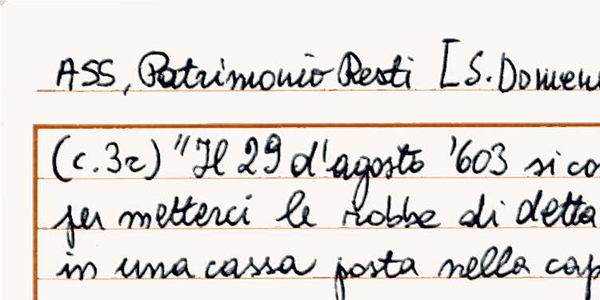 ASS, Patrimonio Resti [S. Domen
(c.3r) "Il 29 d'agosto '603 si co
per metterci le robbe di detta
in una cassa posta nella cap